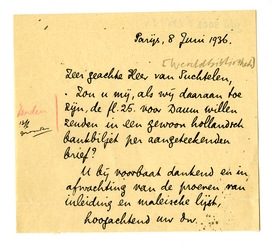 Parijs, 8 Juni 1936.
[Wereldbibliotheek]
Zeer geachte Heer van Suchtelen,
Zou u mij, als wij daaraan toe
zijn, de fl. 25. voor Daum willen
zenden in een gewoon hollandsch
bankbiljet per aangeteekenden
brief?
U bij voorbaat dankend en in
afwachting van de proeven van
inleiding en maleische lijst,
hoogachtend uw dw.